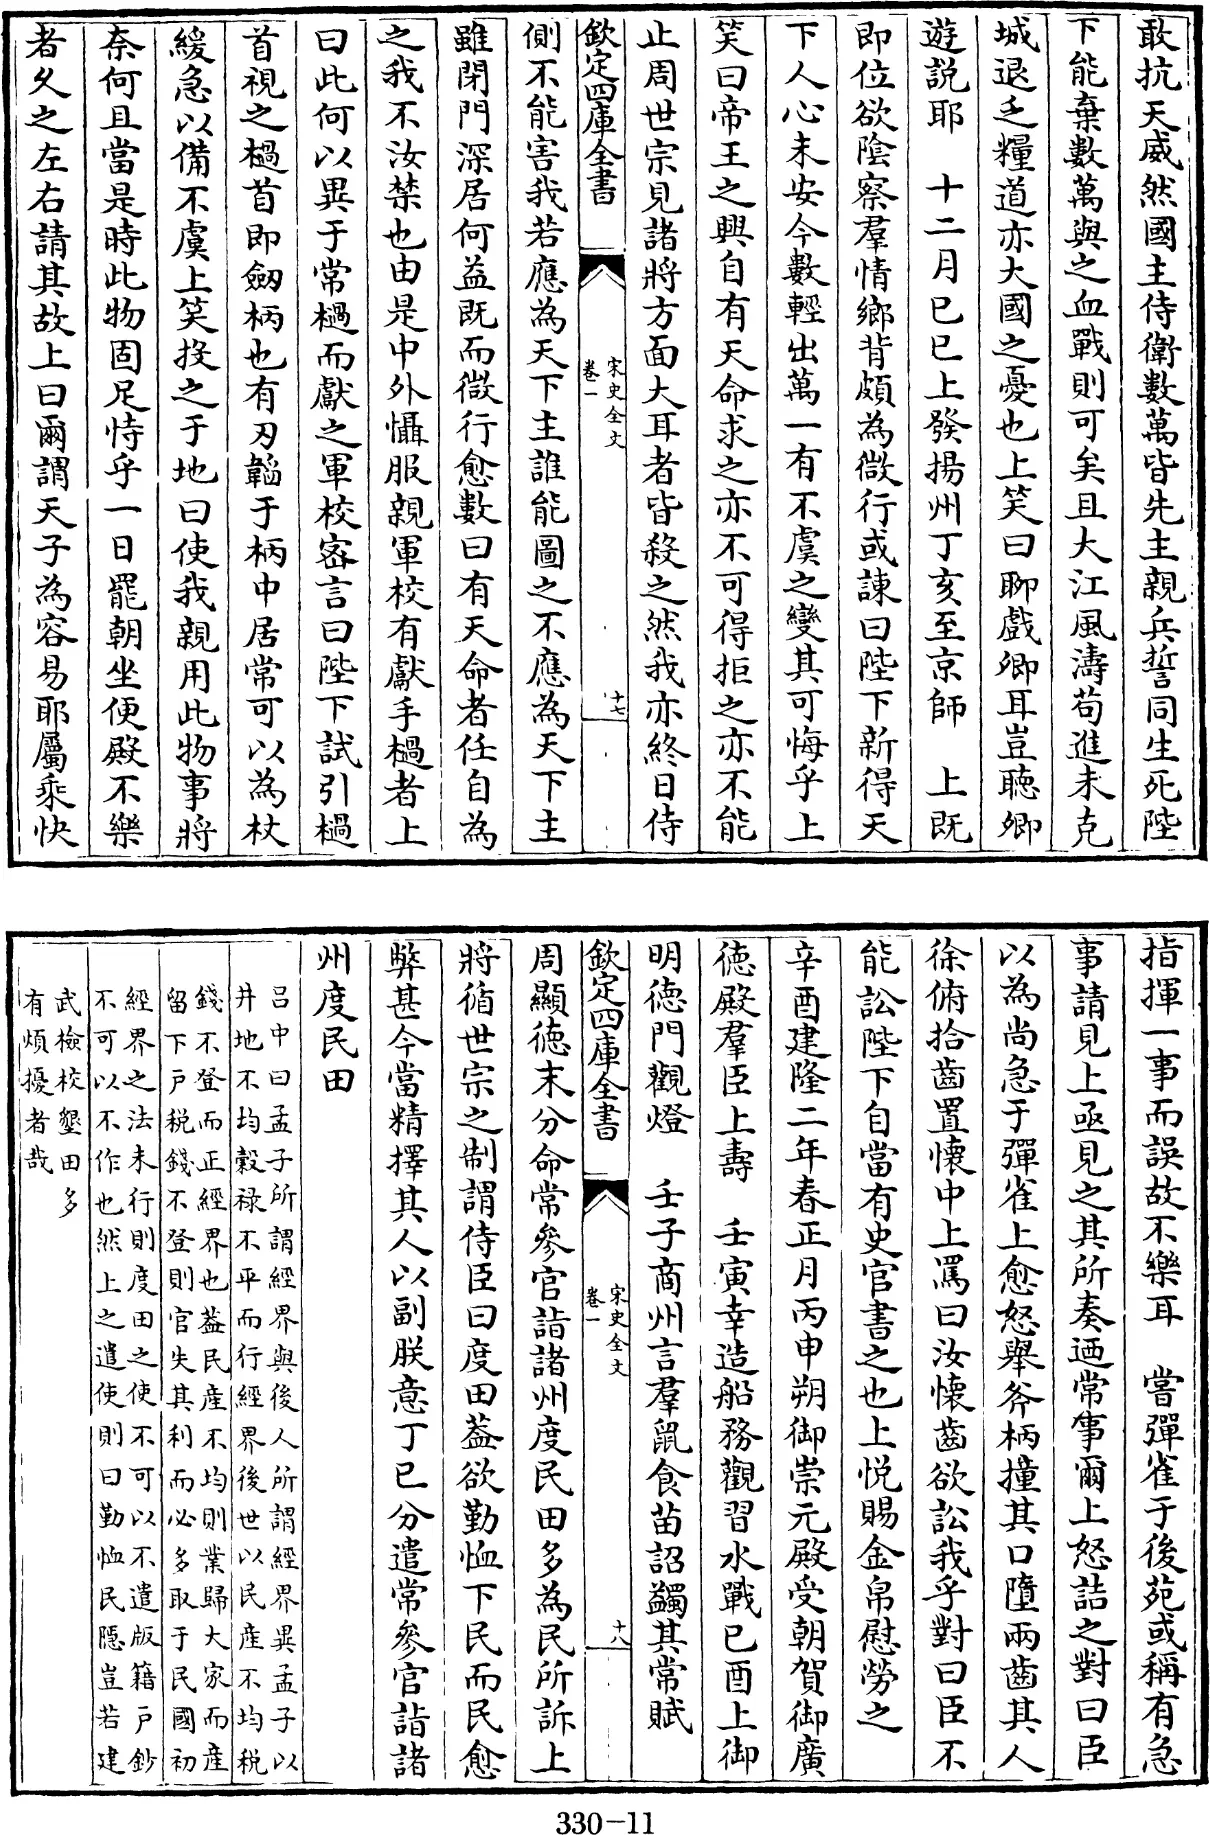 敢抗天威然國主侍衛數萬皆先主親兵誓同生死陛
下能棄數萬與之血戰則可矣且大江風濤茍進未克
城退乏糧道亦大國之憂也上笑曰聊戲卿耳豈聽卿
遊説耶　十二月己巳上發揚州丁亥至京師　上既
即位欲陰察羣情鄉背頗為微行或諫曰陛下新得天
下人心未安今數輕出萬一有不虞之變其可悔乎上
笑曰帝王之興自有天命求之亦不可得拒之亦不能
止周世宗見諸將方面大耳者皆殺之然我亦終日侍
欽定四庫全書
宋史全文
卷一
十七
側不能害我若應為天下主誰能圖之不應為天下主
雖閉門深居何益既而微行愈數曰有天命者任自為
之我不汝禁也由是中外懾服親軍校有獻手檛者上
曰此何以異于常檛而獻之軍校密言曰陛下試引檛
首視之檛首即劔柄也有刃韜于柄中居常可以為杖
緩急以備不虞上笑投之于地曰使我親用此物事將
奈何且當是時此物固足恃乎一日罷朝坐便殿不樂
者乆之左右請其故上曰爾謂天子為容易耶屬乘快
指揮一事而誤故不樂耳　嘗彈雀于後苑或稱有急
事請見上亟見之其所奏廼常事爾上怒詰之對曰臣
以為尚急于彈雀上愈怒舉斧柄撞其口墮兩齒其人
徐俯拾齒置懷中上罵曰汝懷齒欲訟我乎對曰臣不
能訟陛下自當有史官書之也上悦賜金帛慰勞之
辛酉建隆二年春正月丙申朔御崇元殿受朝賀御廣
徳殿羣臣上壽　壬寅幸造船務觀習水戰己酉上御
明徳門觀燈　壬子商州言羣鼠食苗詔蠲其常賦
欽定四庫全書
宋史全文
卷一
十八
周顯徳末分命常參官詣諸州度民田多為民所訴上
將循世宗之制謂侍臣曰度田葢欲勤恤下民而民愈
弊甚今當精擇其人以副朕意丁巳分遣常參官詣諸
州度民田
吕中曰孟子所謂經界與後人所謂經界異孟子以
井地不均榖禄不平而行經界後世以民産不均税
錢不登而正經界也葢民産不均則業歸大家而産
留下户税錢不登則官失其利而必多取于民國初
經界之法未行則度田之使不可以不遣版籍户鈔
不可以不作也然上之遣使則曰勤恤民隱豈若建
武檢校墾田多
有煩擾者哉
330-11